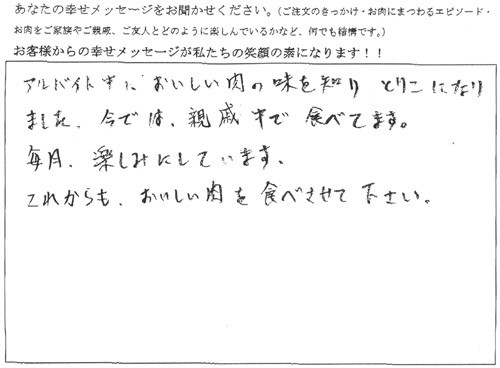 あなたの幸せメッセージをお聞かせください。（ご注文のきっかけ・お肉にまつわるエピソード・
お肉をご家族やご親戚、ご友人とどのように楽しんでいるかなど、何でも結構です。）
お客様からの幸せメッセージが私たちの笑顔の素になります！！
アルバイト中に、おいしい肉の味を知り とりこになり
ました。今では、親戚中で食べてます。
毎月、楽しみにしています、
これからも、おいしい肉を食べさせて下さい。